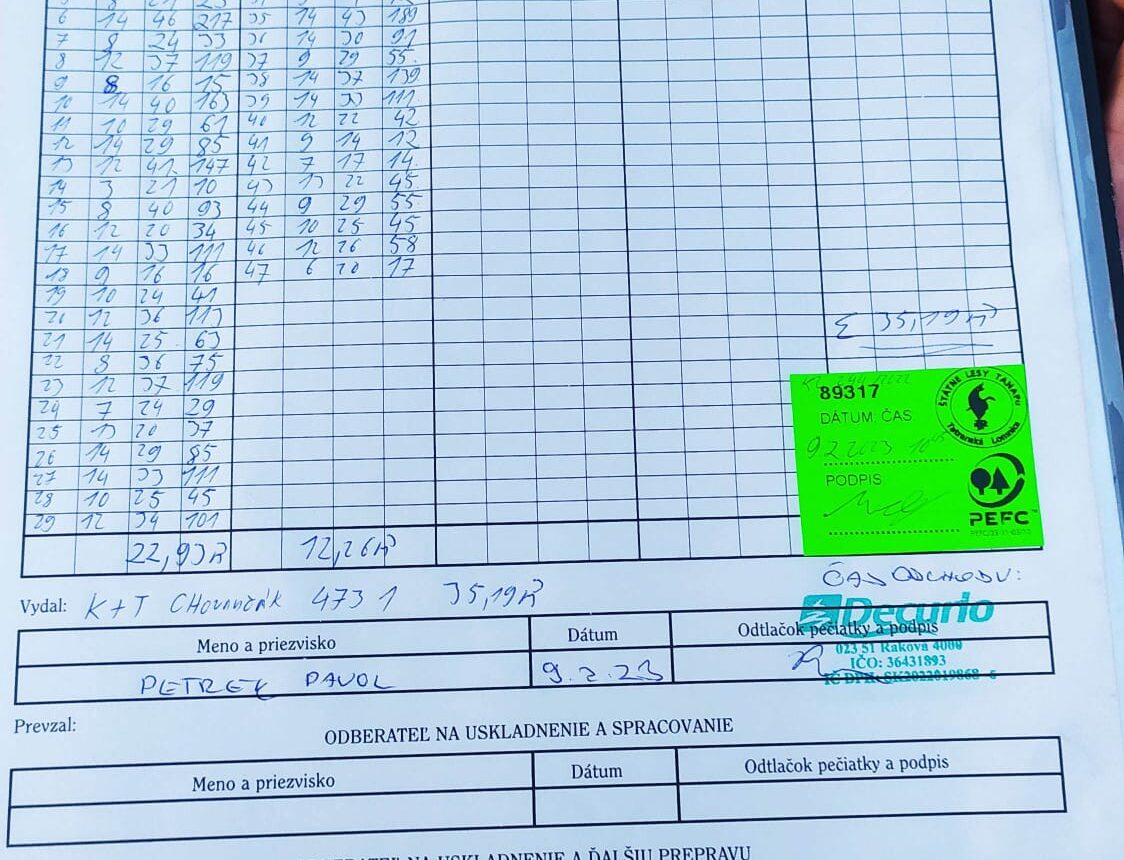 6 14 46 217 35 14 43 189
7 8 24 33 36 14 30 91
8 12 37 119 37 9 29 55
9 8 16 15 38 14 37 139
10 14 40 163 39 14 33 111
11 10 29 61 40 12 22 42
12 14 29 85 41 9 14 12
13 12 41 147 42 7 17 14
14 3 21 10 43 13 22 45
15 8 40 93 44 9 29 55
16 12 20 34 45 10 25 45
17 14 33 111 46 12 26 58
18 9 16 16 47 6 20 17
19 10 24 41
20 12 36 113
21 14 25 63
22 8 36 75
23 12 37 119
24 7 24 29
25 13 20 37
26 14 29 85
27 14 33 111
28 10 25 45
29 12 34 101
Σ 35,19 m³
22,93 m³ 12,26 m³
89317
ŠTÁTNE LESY TANAPU
Tatranská Lomnica
DÁTUM: ČAS
9.2.2023 10
PODPIS:
PEFC™
ČAS ODCHODU:
Vydal: K+T 473 1 35,19 m³
Decurio
Meno a priezvisko Dátum Odtlačok pečiatky a podpis
023 51 Raková 4000
IČO: 36431893
IČ DPH: SK2022019868
PETREK PAVOL 9.2.23
Prevzal:
ODBERATEĽ NA USKLADNENIE A SPRACOVANIE
Meno a priezvisko Dátum Odtlačok pečiatky a podpis
NA USKLADNENIE A ĎALŠIU PREPRAVU